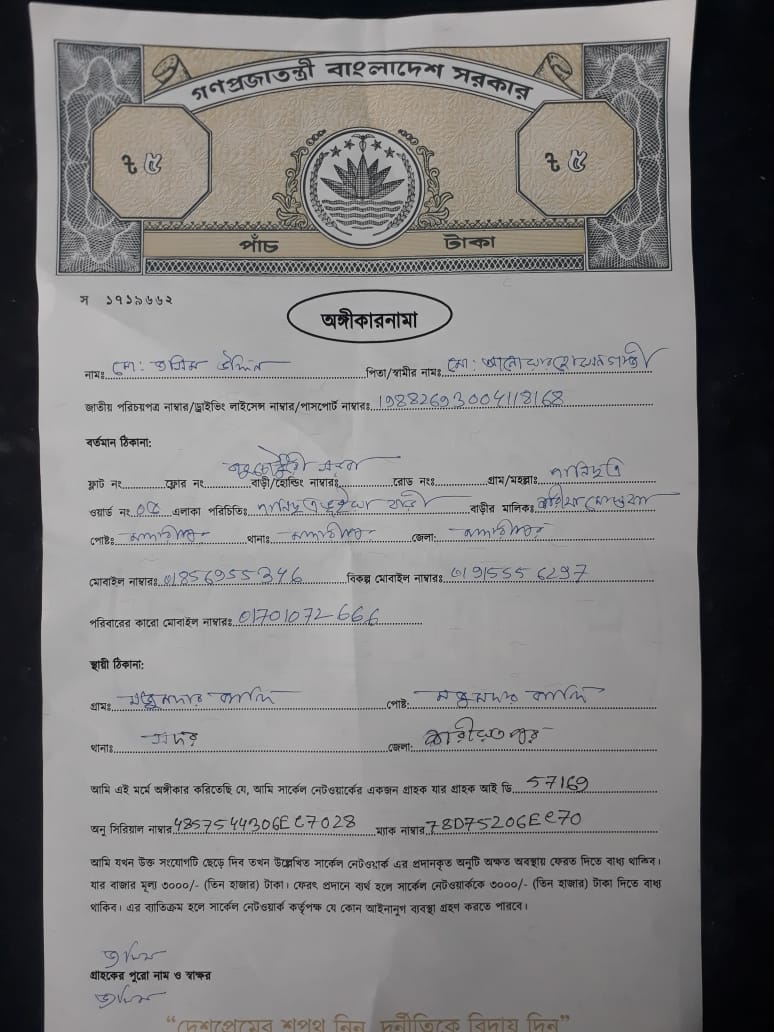 গণপ্রজাতন্ত্রী বাংলাদেশ সরকার
৳ ৫ ৳ ৫
পাঁচ টাকা
স ১৭১৯৬৬২
অঙ্গীকারনামা
নামঃ মো: জসিম উদ্দিন পিতা/স্বামীর নামঃ মো:
জাতীয় পরিচয়পত্র নাম্বার/ড্রাইভিং লাইসেন্স নাম্বার/পাসপোর্ট নাম্বারঃ 19882693004118168
বর্তমান ঠিকানা:
ফ্লাট নং ফ্লোর নং বাড়ী/হোল্ডিং নাম্বারঃ রোড নংঃ গ্রাম/মহল্লাঃ পানিছত্র
ওয়ার্ড নং এলাকা পরিচিতিঃ পানিছত্র বাড়ী বাড়ীর মালিকঃ
পোষ্টঃ মাদারীপুর থানাঃ মাদারীপুর জেলা: মাদারীপুর
মোবাইল নাম্বারঃ 01856955346 বিকল্প মোবাইল নাম্বারঃ 01915556297
পরিবারের কারো মোবাইল নাম্বারঃ 01701072666
স্থায়ী ঠিকানা:
গ্রামঃ মজুমদার কান্দি পোষ্ট: মজুমদার কান্দি
থানাঃ সদর জেলা: শরীয়তপুর
আমি এই মর্মে অঙ্গীকার করিতেছি যে, আমি সার্কেল নেটওয়ার্কের একজন গ্রাহক যার গ্রাহক আই ডি 57169
অনু সিরিয়াল নাম্বার 4857544306EC7028 ম্যাক নাম্বার 78D75206EC70
আমি যখন উক্ত সংযোগটি ছেড়ে দিব তখন উল্লেখিত সার্কেল নেটওয়ার্ক এর প্রদানকৃত অনুটি অক্ষত অবস্থায় ফেরত দিতে বাধ্য থাকিব।
যার বাজার মূল্য ৩০০০/- (তিন হাজার) টাকা। ফেরৎ প্রদানে ব্যর্থ হলে সার্কেল নেটওয়ার্ককে ৩০০০/- (তিন হাজার) টাকা দিতে বাধ্য
থাকিব। এর ব্যাতিক্রম হলে সার্কেল নেটওয়ার্ক কর্তৃপক্ষ যে কোন আইনানুগ ব্যবস্থা গ্রহণ করতে পারবে।
জসিম
গ্রাহকের পুরো নাম ও স্বাক্ষর
জসিম
“দেশপ্রেমের শপথ নিন, দুর্নীতিকে বিদায় দিন”